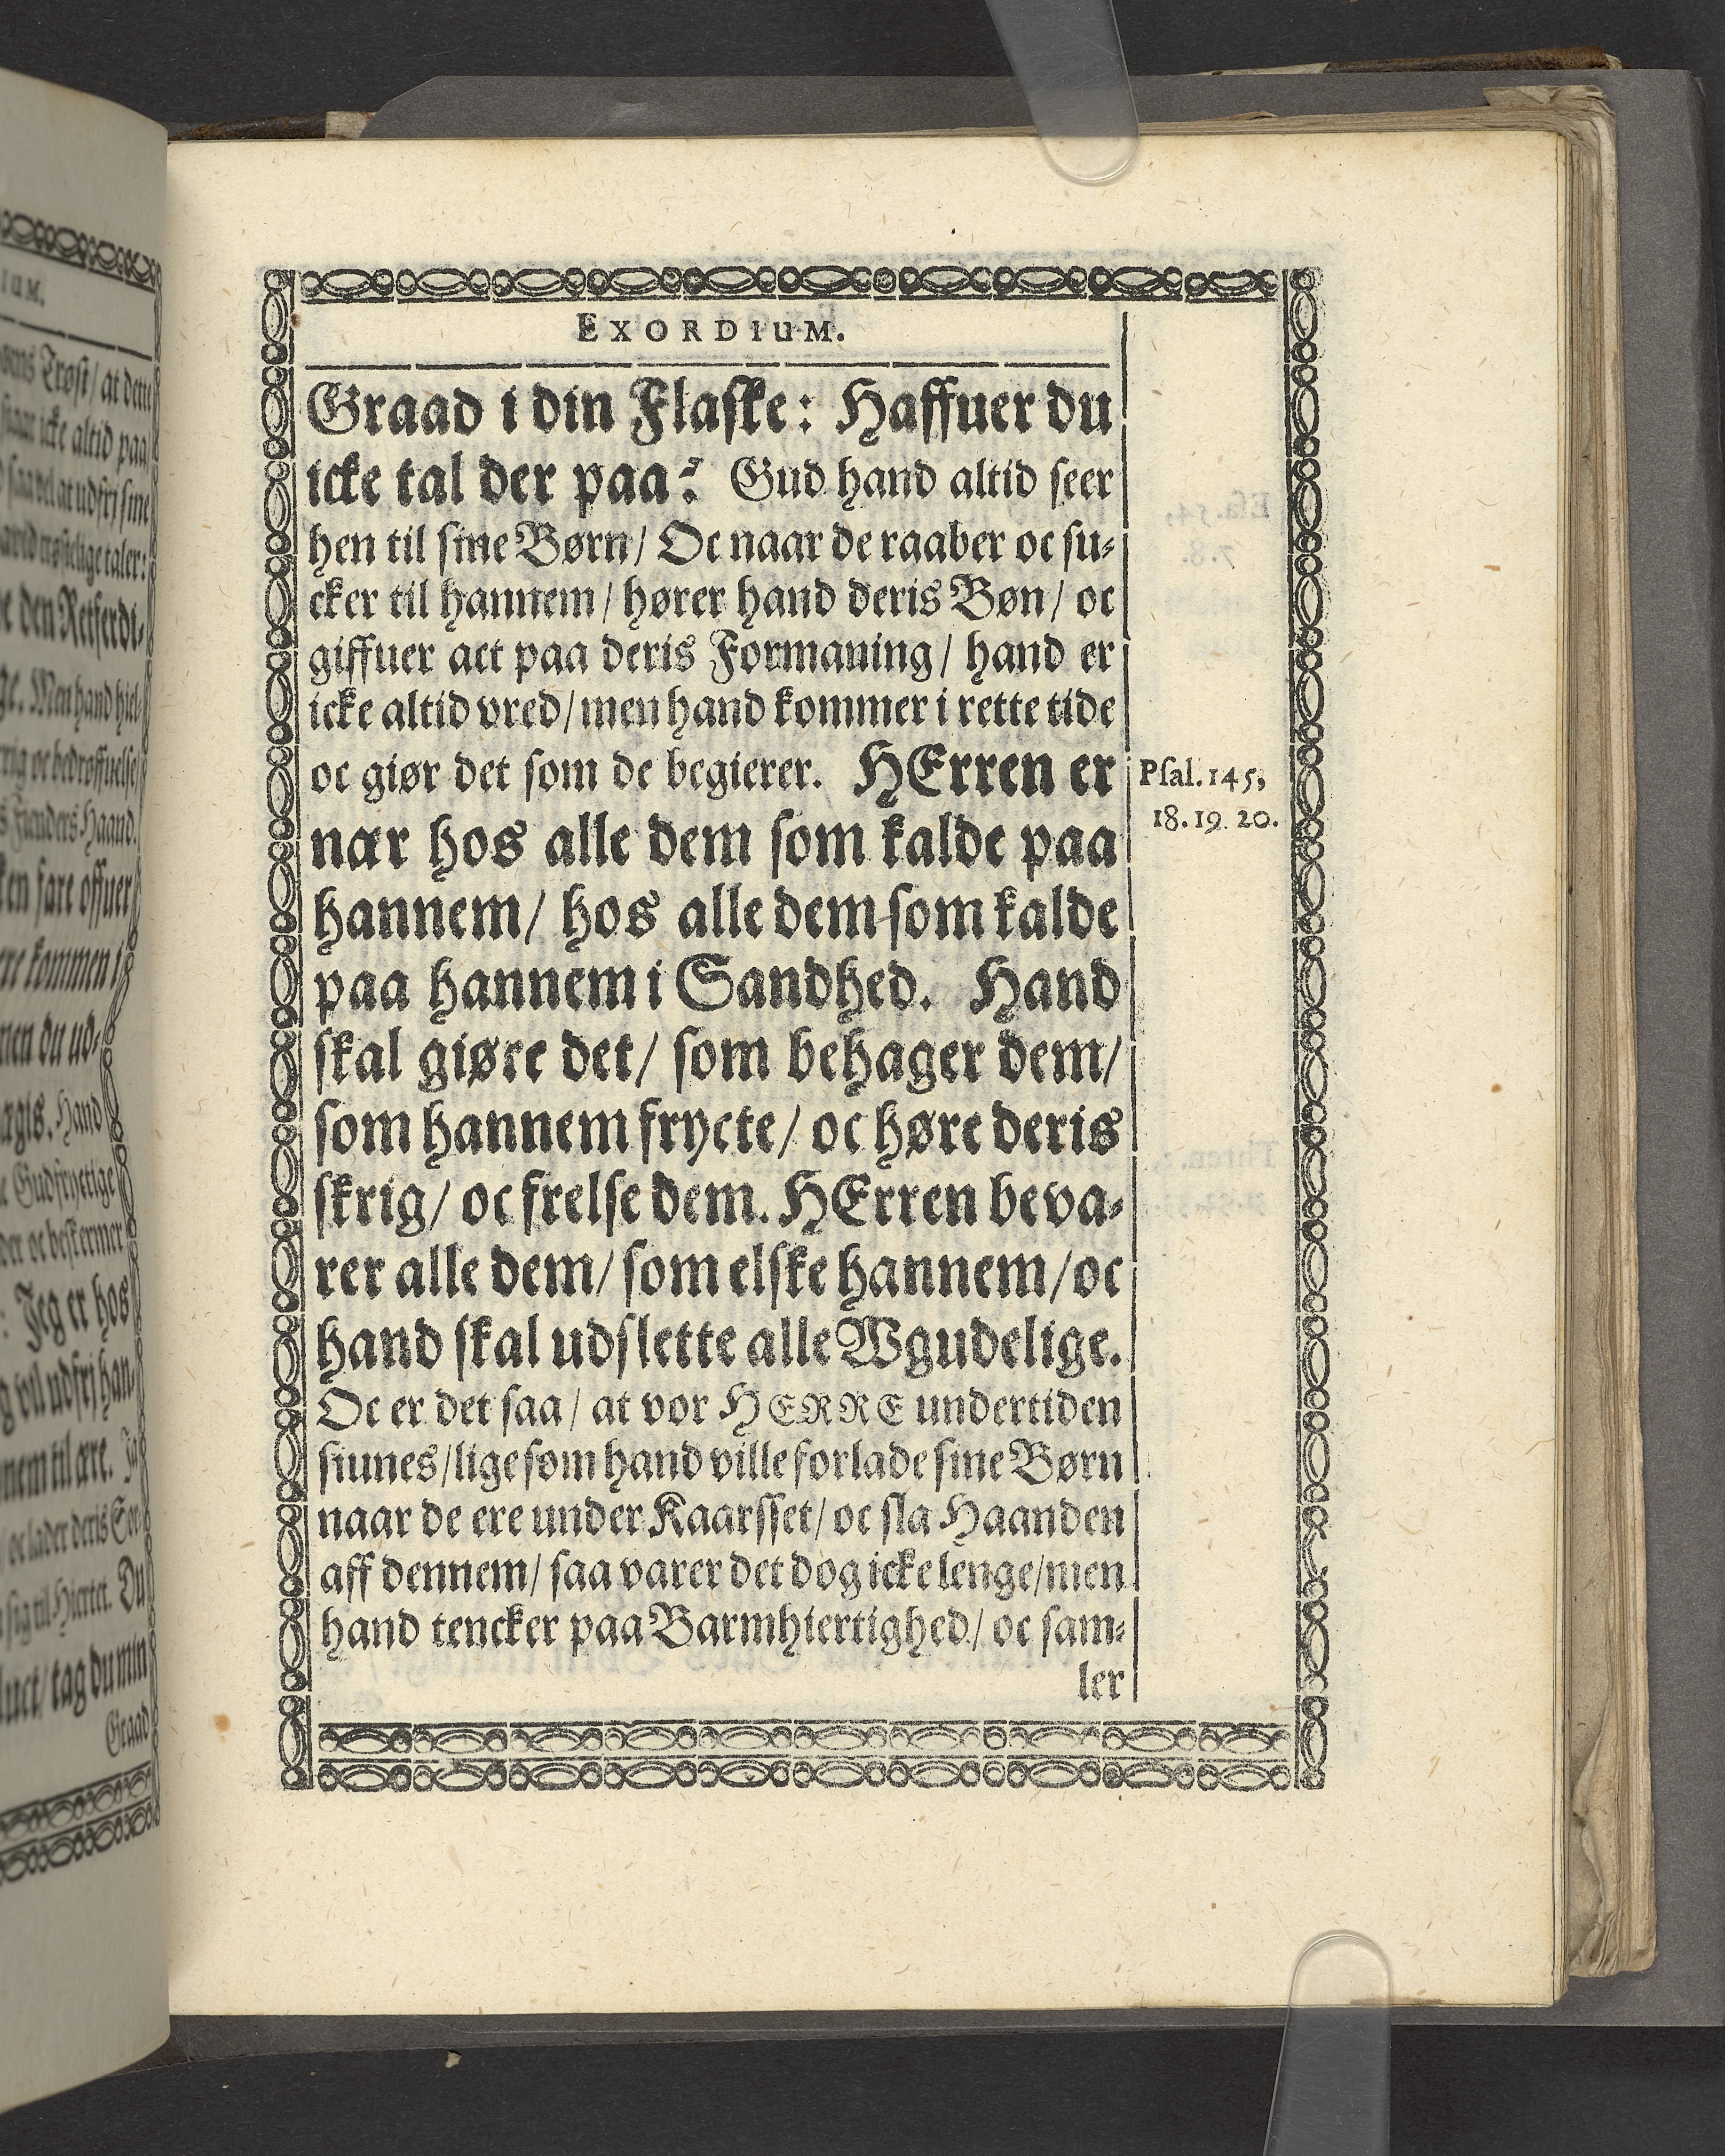 EXORDIUM.
Graad i din Flaske: Haffuer du
icke tal der paa? Gud hand altid seer
hen til sine Børn/ Oc naar de raaber oc su-
cker til hannem/ hører hand deris Bøn/ oc
giffuer act paa deris Formaning/ hand er
icke altid vred/ men hand kommer i rette tide
oc giør det som de begierer. HErren er
Psal. 145,
18. 19 20.
nær hos alle dem som kalde paa
hannem/ hos alle dem som kalde
paa hannem i Sandhed. Hand
skal giøre det/ som behager dem/
som hannem frycte/ oc høre deris
skrig/ oc frelse dem. HErren beva-
rer alle dem/ som elske hannem/ oc
hand skal udslette alle Wgudelige.
Oc er det saa/ at vor HERRE undertiden
siunes/ lige som hand ville forlade sine Børn
naar de ere under Kaarsset/ oc sla Haanden
aff dennem/ saa varer det dog icke lenge/ men
hand tencker paa Barmhiertighed/ oc sam-
ler